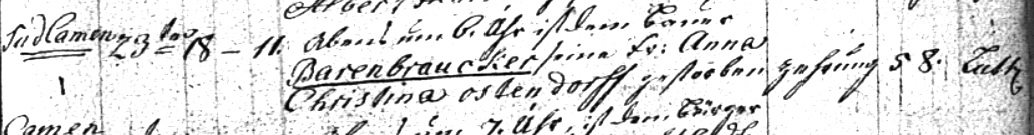 Südcamen 23ten 18 - 11. Abens um 6. Uhr ist dem Bauer
Barenbraucker seine Fr: Anna
Christina ostendorff gestorben zehrung 58. Luth
1
Camen um 7. Uhr, ist dem Bürger